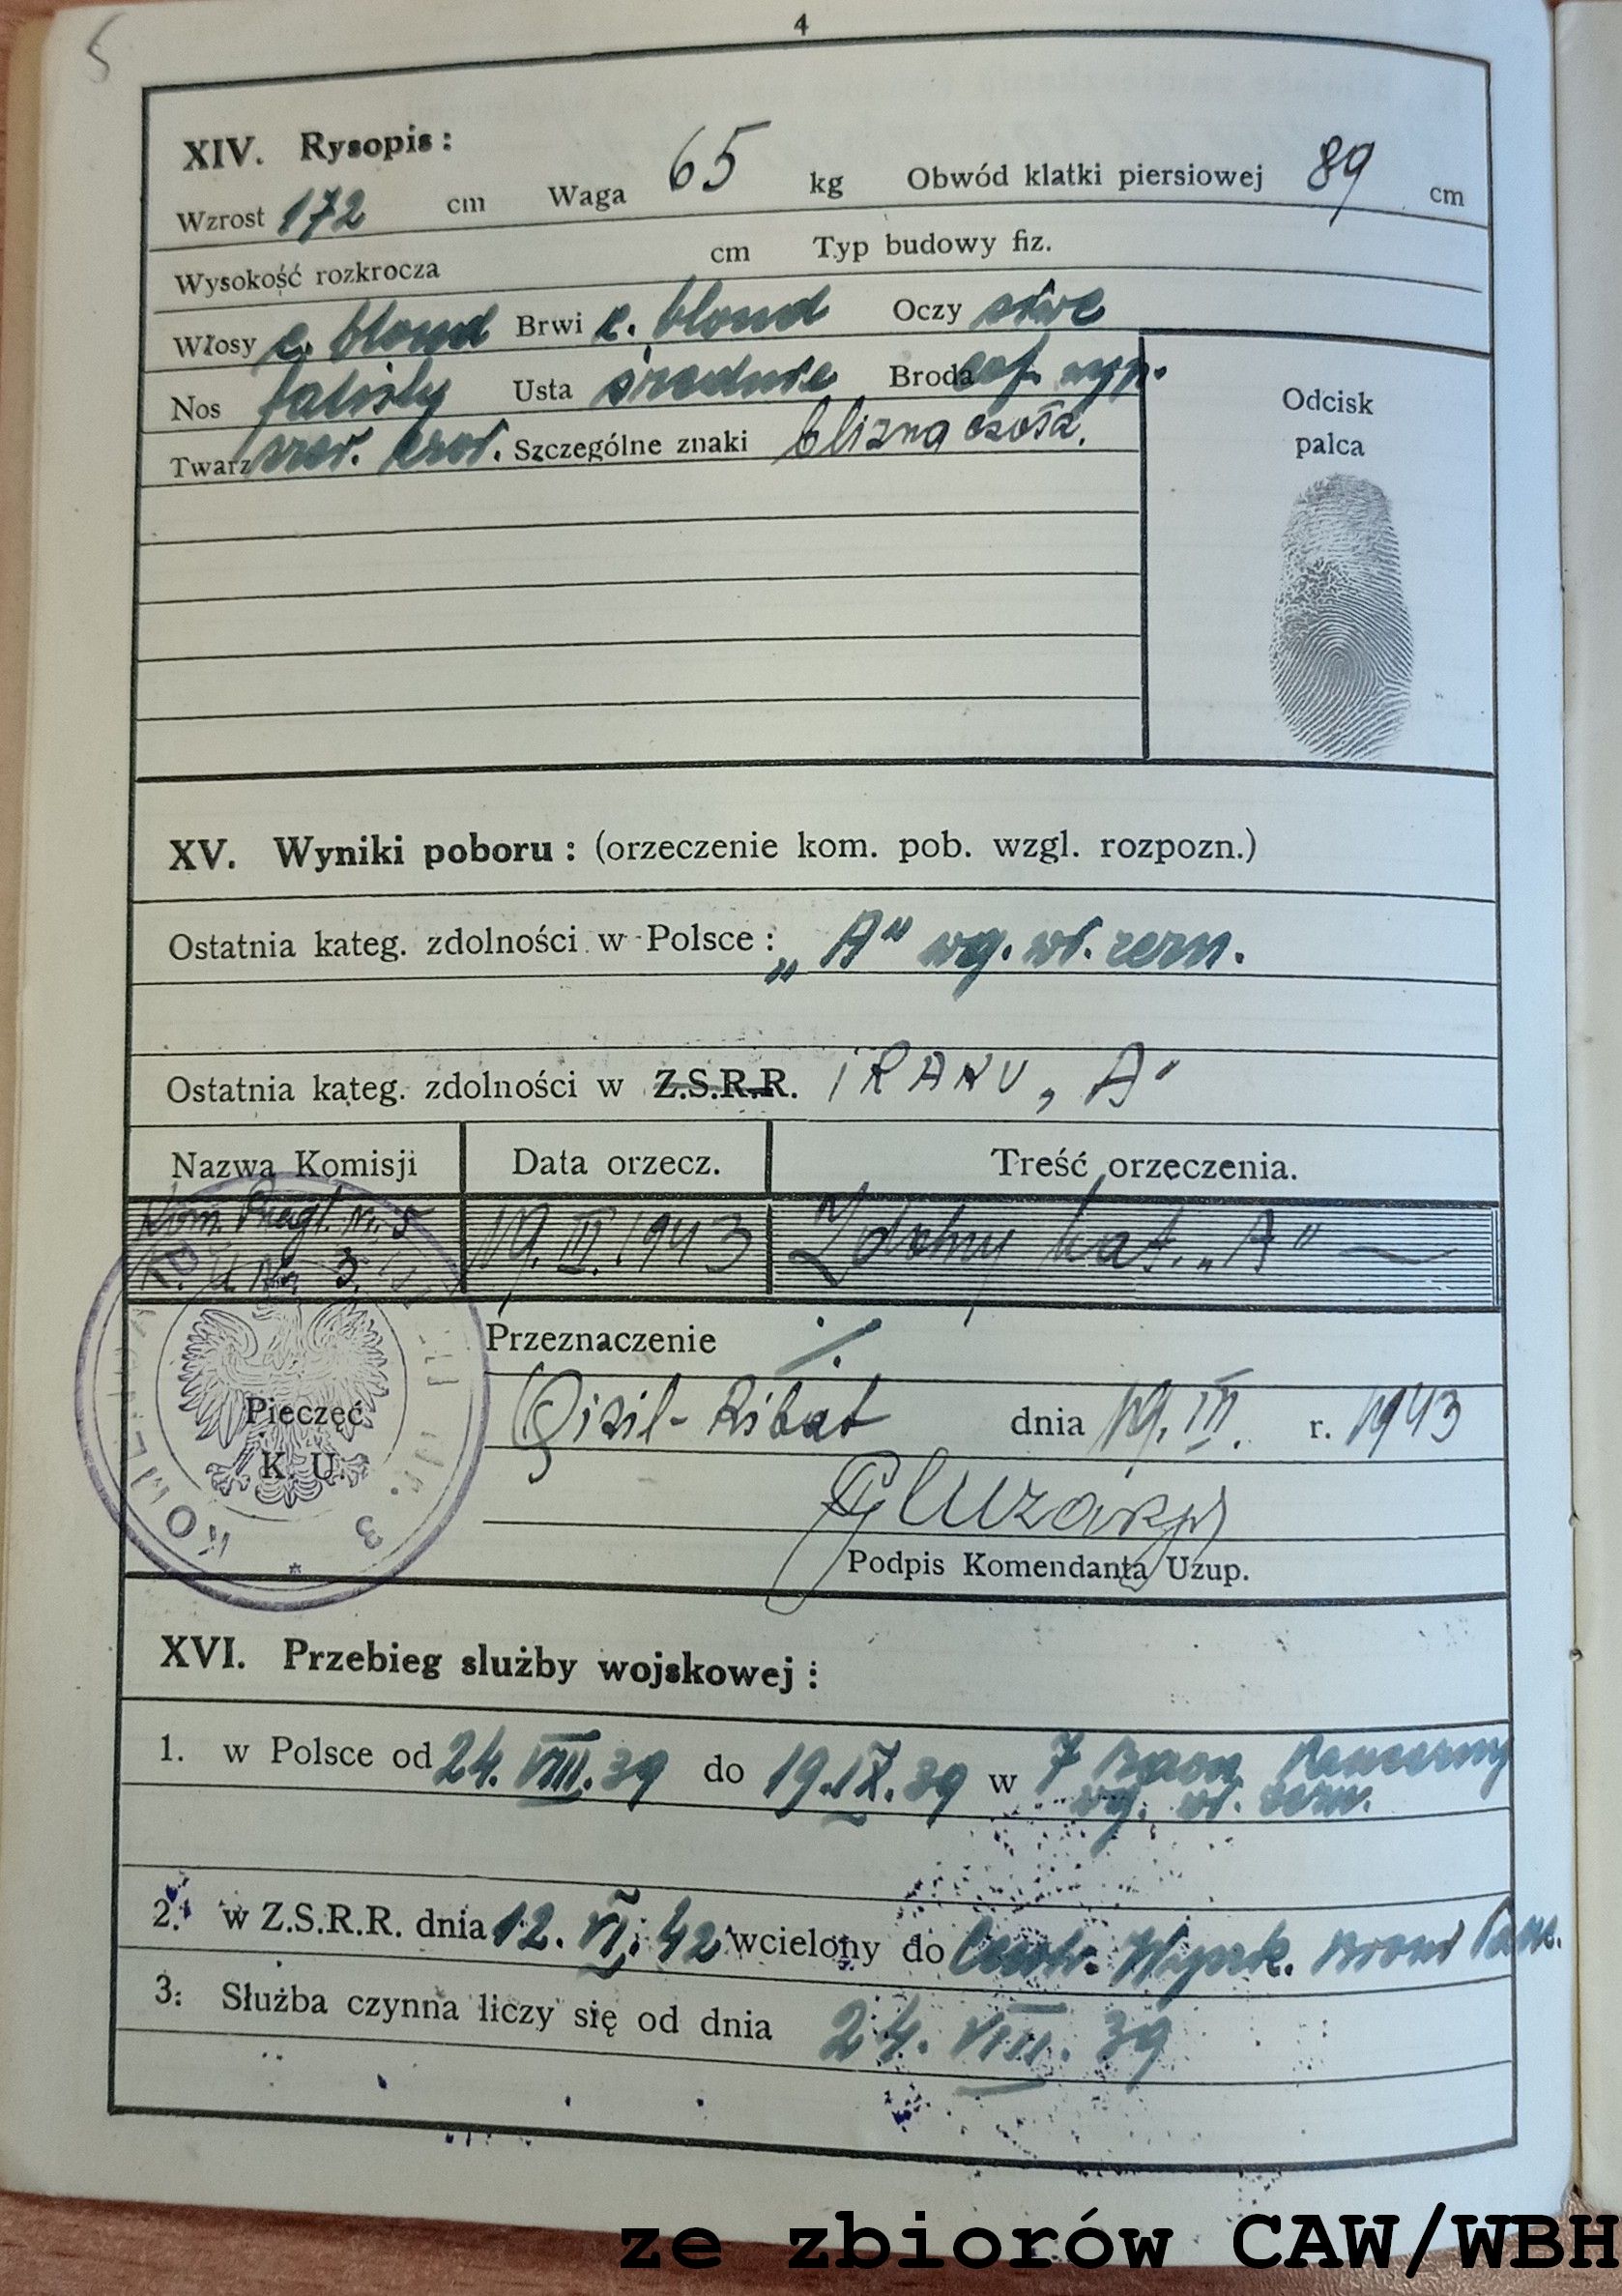 5
4
XIV. Rysopis :
Wzrost 172 cm Waga 65 kg Obwód klatki piersiowej 89 cm
Wysokość rozkrocza cm Typ budowy fiz.
Włosy c. blond Brwi c. blond Oczy siwe
Nos falisty Usta średnie Broda cof. wyp.
Twarz Szczególne znaki blizna czoła.
Odcisk
palca
XV. Wyniki poboru : (orzeczenie kom. pob. wzgl. rozpozn.)
Ostatnia kateg. zdolności w Polsce : „A" wg. wł. zezn.
Ostatnia kateg. zdolności w Z.S.R.R. IRAKU „A"
Nazwa Komisji Data orzecz. Treść orzeczenia.
Kom. Przegl. Nr. 5 19.III.1943 Zdolny kat. „A"
K. U. Nr. 3.
Przeznaczenie ./.
Qizil-Ribat dnia 19.III. r. 1943
Pieczęć
K. U.
Podpis Komendanta Uzup.
XVI. Przebieg służby wojskowej :
1. w Polsce od 24.VIII.39 do 19.IX.39 w 7 Baon Pancerny
wg. wł. zezn.
2. w Z.S.R.R. dnia 12.VI.42 wcielony do Centr. Wyszk. Broni Panc.
3. Służba czynna liczy się od dnia 24.VIII.39
ze zbiorów CAW/WBH